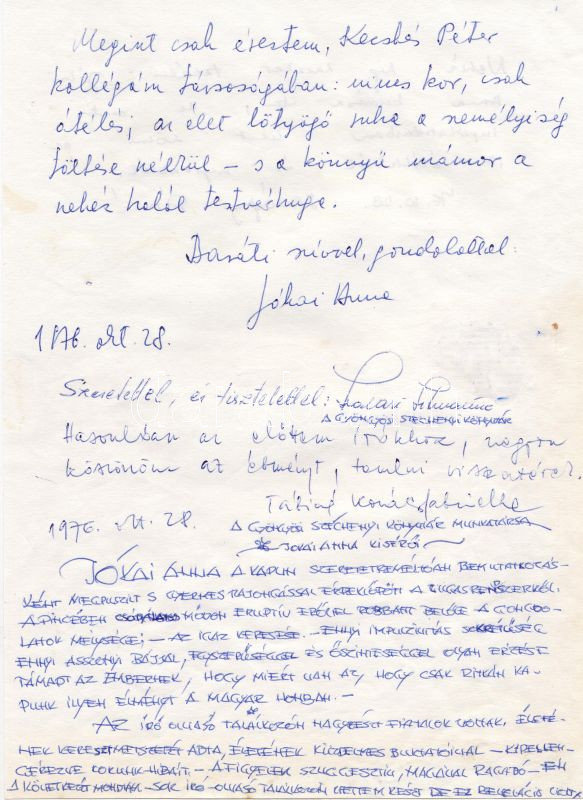 Megint csak éreztem, Kecskés Péter
kollégám társaságában: nincs kor, csak
átélés; az élet lötyögő ruha a személyiség
töltése nélkül – s a könnyű mámor a
nehéz halál testvérhuga.
Baráti szívvel, gondolattal:
Jókai Anna
1976. okt. 28.
Szeretettel, és tisztelettel:
A GYÖNGYÖSI SZÉCHENYI KÖNYVTÁR
Hasonlóan az előttem írókhoz, nagyon
köszönöm az élményt, tanulni visszatérek.
Tábiné Kovács Gabriella
1976. okt. 28.
A GYÖNGYÖSI SZÉCHENYI KÖNYVTÁR MUNKATÁRSA
JÓKAI ANNA KISÉRŐI
JÓKAI ANNA A KAPUN SZERETETREMÉLTÓAN BEMUTATKOZÁS-
KÉNT MEGPUSZILT S GYERMEKI RAJONGÁSSAL A
A PINCÉBEN MÓDON ERUPTÍV ERŐVEL ROBBANT BELŐLE A GONDO-
LATOK MÉLYSÉGE; – AZ IGAZ KERESÉSE. – ENNYI IMPULZIVITÁS
ENNYI ASSZONYI BÁJJAL, EGYSZERŰSÉGGEL ÉS ŐSZINTESÉGGEL OLYAN ÉRZÉST
TÁMADT AZ EMBERNEK, HOGY MIÉRT VAN AZ, HOGY CSAK RITKÁN KA-
PUNK ILYEN ÉLMÉNYT A MAGYAR HONBAN. –
AZ ÍRÓ OLVASÓ TALÁLKOZÓN NAGYRÉSZT FIATALOK VOLTAK, ÉLETÉ-
NEK KERESZTMETSZETÉT ADTA, ÉLETÉNEK BUKTATÓIVAL – KIPELLEN-
GÉREZVE KORUNK HIBÁIT. – A FIGYELEM SZUGGESZTÍV, MAGÁVAL RAGADÓ –
A KÖVETKEZŐT MONDANÁM – SOK ÍRÓ-OLVASÓ TALÁLKOZÓN VETTEM RÉSZT DE EZ